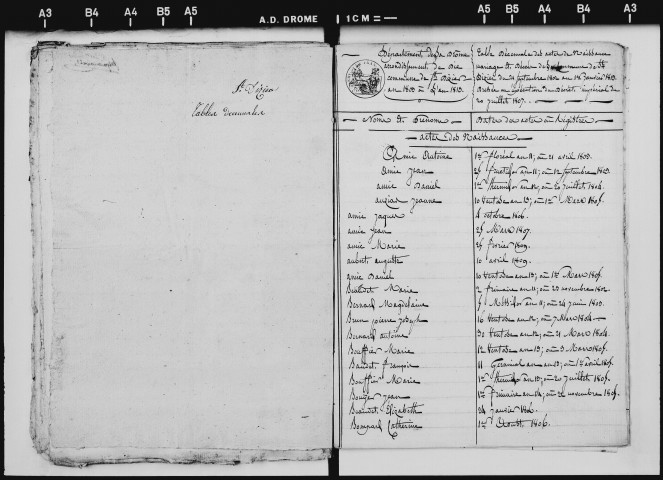 A3 B4 A4 B5 A5 A.D. DROME 1 CM A5 B5 A4 B4 A3
St. Dizier
Tables décennales
Département de la Drome
arrondissement de Die
commune de St. Dizier
an 1803 à l'an 1813.
Table Décennale des actes de Naissance
mariage et Décès de la commune de St
Dizier du 24 septembre 1802 au 1er janvier 1813.
20 juillet 1807.
Noms et Prénoms Dates des actes au Registre
actes des Naissances
Amic Antoine 1er floréal an 11; ou 21 avril 1803.
Amic Jean 25 fructidor an 11; ou 12 septembre 1803.
amic Daniel 1er thermidor an 12; ou 20 juillet 1804.
Jeanne 10 Ventose an 13; ou 1er Mars 1805.
amic Jaques 4 octobre 1806.
amic Jean 25 Mars 1807.
amic Marie 25 février 1809.
aubert auguste 10 avril 1809.
amic Daniel 10 Ventose an 13; ou 1er Mars 1805.
Marie 2 frimaire an 11; ou 23 novembre 1802.
Bernard Magdelaine 5 Messidor an 11; ou 24 juin 1803.
Brun pierre joseph 16 Ventose an 12; ou 7 Mars 1804
Bernard antoine 30 Ventose an 12; ou 21 Mars 1804.
Bouffier Marie 12 Ventose an 13; ou 3 Mars 1805.
françois 11 Germinal an 13; ou 1er avril 1805.
Bouffier Marie 1er thermidor an 13; ou 20 juillet 1805.
Jean 1er frimaire an 14; ou 22 novembre 1805.
Elizabeth 24 janvier 1806.
Bompard Catherine 1er Aoust 1806.